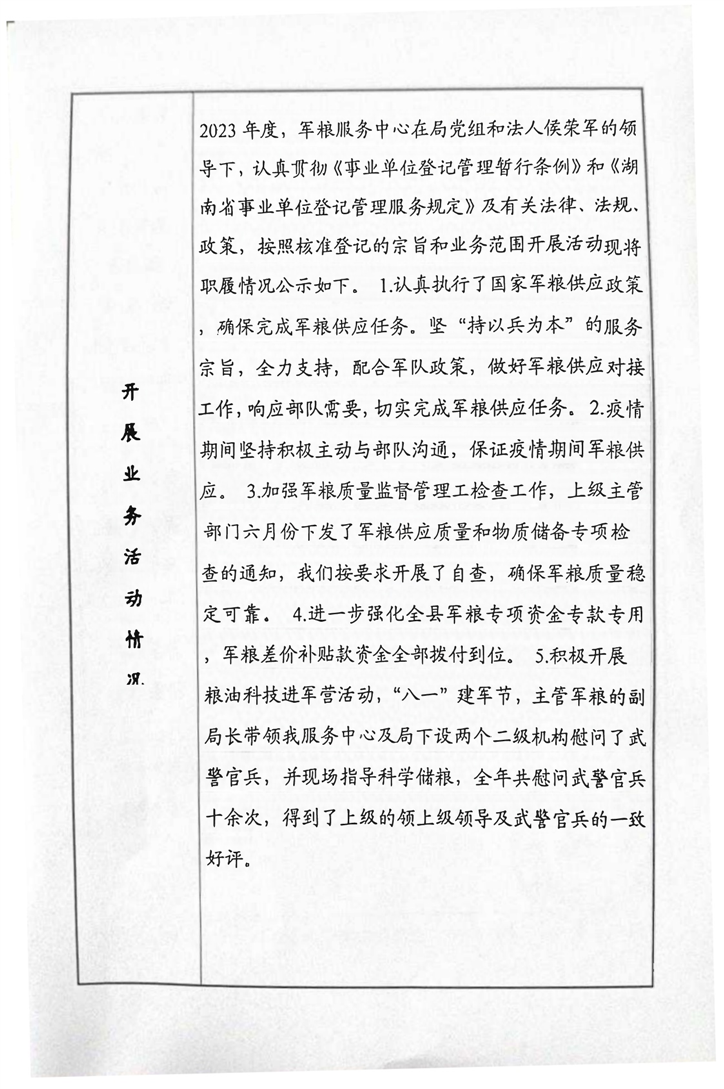 开展业务活动情况
2023 年度，军粮服务中心在局党组和法人侯荣军的领
导下，认真贯彻《事业单位登记管理暂行条例》和《湖
南省事业单位登记管理服务规定》及有关法律、法规、
政策，按照核准登记的宗旨和业务范围开展活动现将
职履情况公示如下。 1.认真执行了国家军粮供应政策
，确保完成军粮供应任务。坚“持以兵为本”的服务
宗旨，全力支持，配合军队政策，做好军粮供应对接
工作，响应部队需要，切实完成军粮供应任务。 2.疫情
期间坚持积极主动与部队沟通，保证疫情期间军粮供
应。 3.加强军粮质量监督管理工检查工作，上级主管
部门六月份下发了军粮供应质量和物质储备专项检
查的通知，我们按要求开展了自查，确保军粮质量稳
定可靠。 4.进一步强化全县军粮专项资金专款专用
，军粮差价补贴款资金全部拨付到位。 5.积极开展
粮油科技进军营活动，“八一”建军节，主管军粮的副
局长带领我服务中心及局下设两个二级机构慰问了武
警官兵，并现场指导科学储粮，全年共慰问武警官兵
十余次，得到了上级的领上级领导及武警官兵的一致
好评。